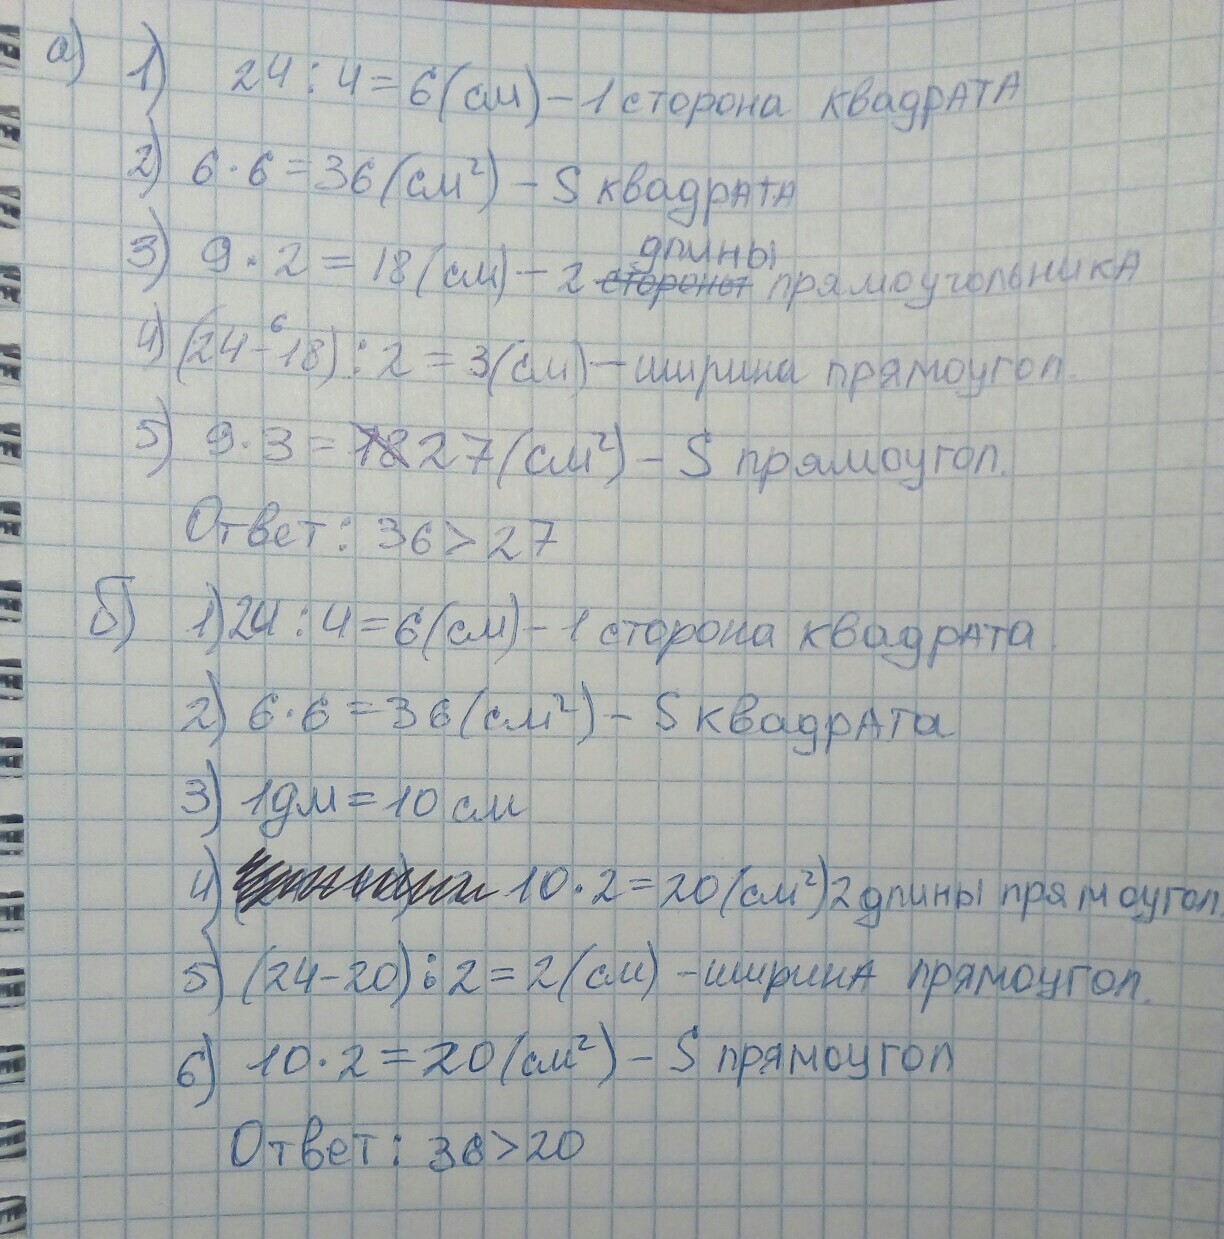 а) 1) 24 : 4 = 6 (см) – 1 сторона квадрата
2) 6 · 6 = 36 (см²) – S квадрата
длины
3) 9 · 2 = 18 (см) – 2 стороны прямоугольника
6
4) (24 – 18) : 2 = 3 (см) – ширина прямоугол.
5) 9 · 3 = 18 27 (см²) – S прямоугол.
Ответ: 36 > 27
б) 1) 24 : 4 = 6 (см) – 1 сторона квадрата
2) 6 · 6 = 36 (см²) – S квадрата
3) 1 дм = 10 см
4) 10 · 2 = 20 (см²) 2 длины прямоугол
5) (24 – 20) : 2 = 2 (см) – ширина прямоугол.
6) 10 · 2 = 20 (см²) – S прямоугол
Ответ: 36 > 20